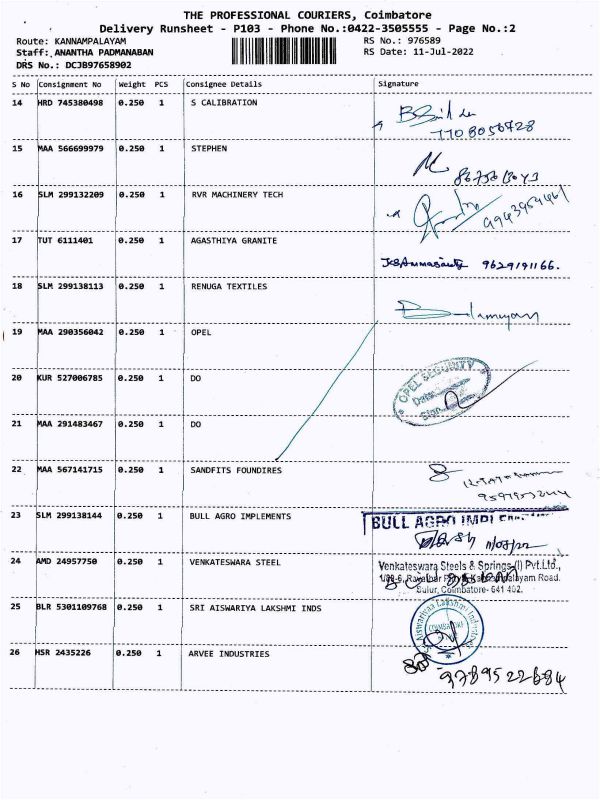 THE PROFESSIONAL COURIERS, Coimbatore
Delivery Runsheet - P103 - Phone No.:0422-3505555 - Page No.:2
Route: KANNAMPALAYAM RS No.: 976589
Staff: ANANTHA PADMANABAN RS Date: 11-Jul-2022
DRS No.: DCJB97658902
S No Consignment No Weight PCS Consignee Details Signature
14 HRD 745380498 0.250 1 S CALIBRATION
7708056728
15 MAA 566699979 0.250 1 STEPHEN
16 SLM 299132209 0.250 1 RVR MACHINERY TECH
9943954461
17 TUT 6111401 0.250 1 AGASTHIYA GRANITE
9629191166.
18 SLM 299138113 0.250 1 RENUGA TEXTILES
19 MAA 290356042 0.250 1 OPEL
20 KUR 527006785 0.250 1 DO
OPEL SECURITY
Date
Sign
21 MAA 291483467 0.250 1 DO
22 MAA 567141715 0.250 1 SANDFITS FOUNDIRES
23 SLM 299138144 0.250 1 BULL AGRO IMPLEMENTS BULL AGRO
24 AMD 24957750 0.250 1 VENKATESWARA STEEL Venkateswara Steels & Springs (I) Pvt.Ltd.,
Road.
Sulur, Coimbatore- 641 402.
25 BLR 5301109768 0.250 1 SRI AISWARIYA LAKSHMI INDS
COIMBATORE
26 HSR 2435226 0.250 1 ARVEE INDUSTRIES
9789522684